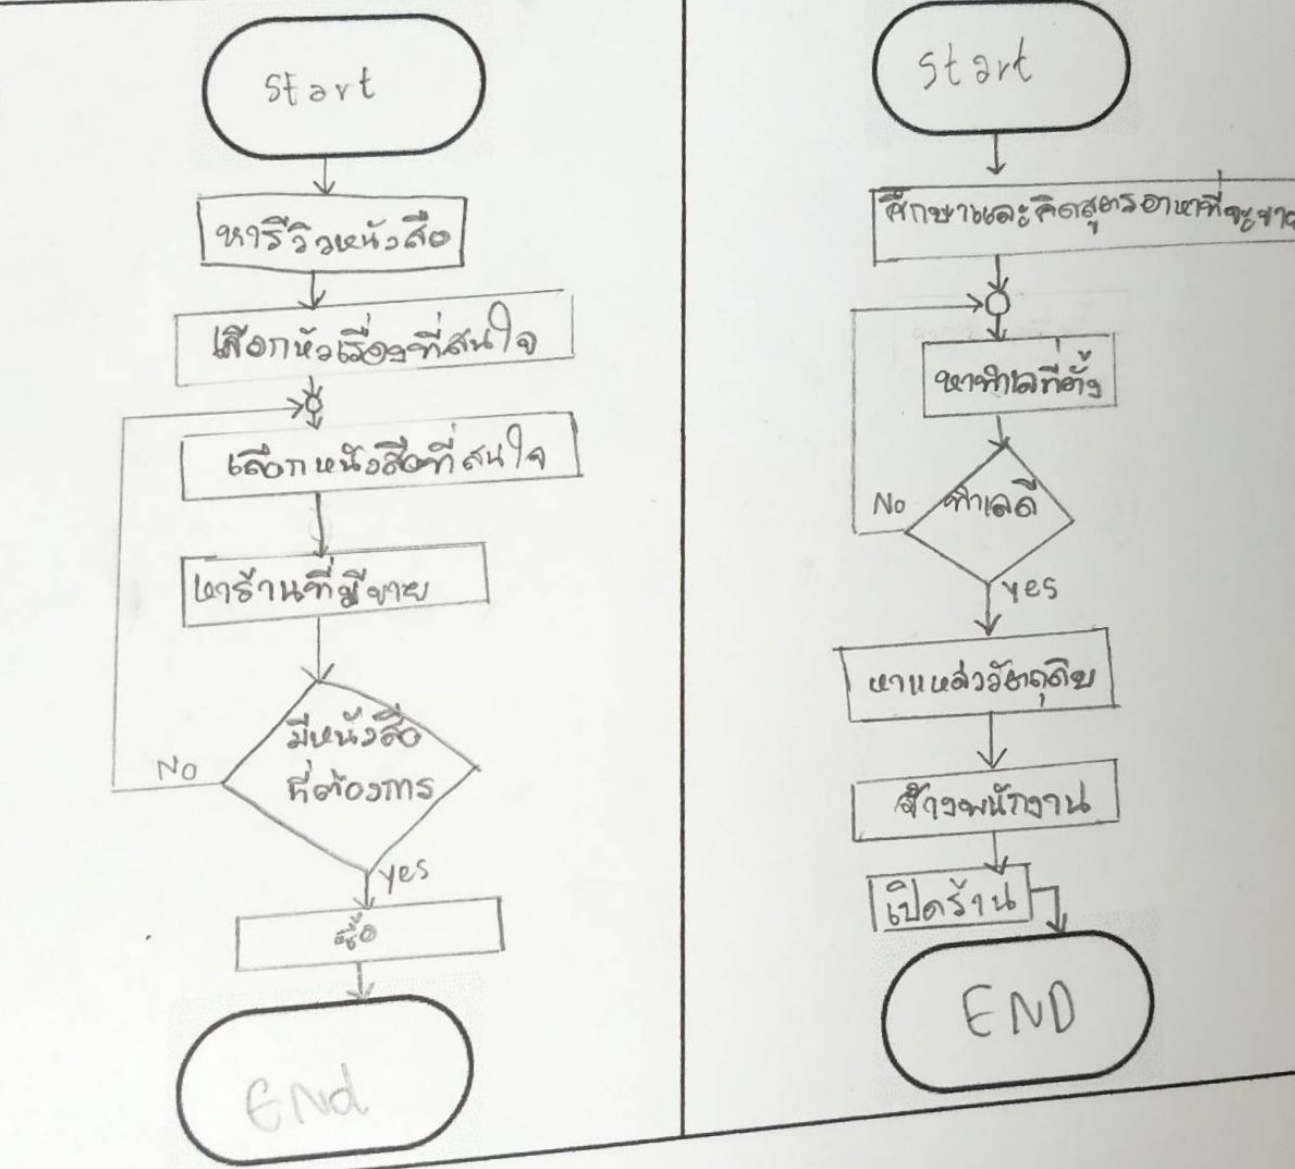 Start
หารีวิวหนังสือ
เลือกหัวเรื่องที่สนใจ
เลือกหนังสือที่สนใจ
หาร้านที่มีขาย
มีหนังสือ
ที่ต้องการ
No
yes
ซื้อ
End
Start
ศึกษาและคิดสูตรอาหาที่จะขาย
หาทำเลที่ตั้ง
ทำเลดี
No
yes
หาแหล่งวัตถุดิบ
จ้างพนักงาน
เปิดร้าน
END